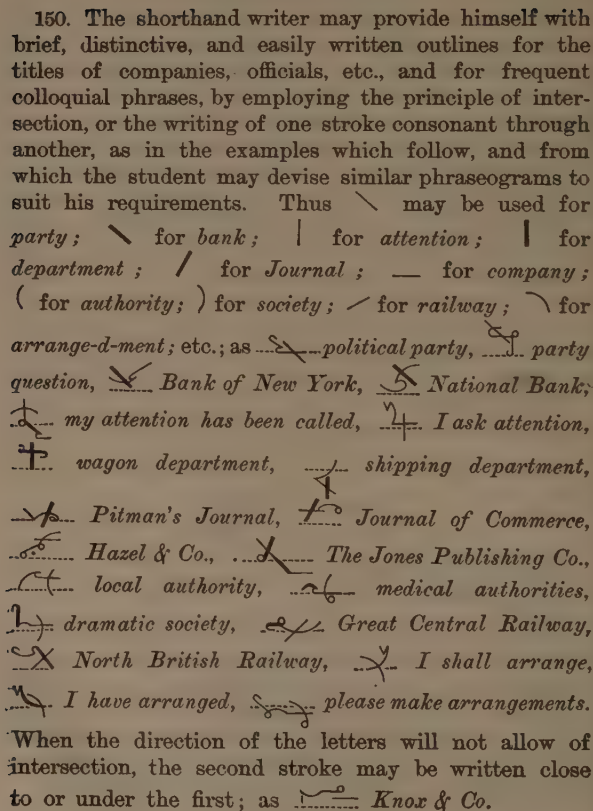 150. The shorthand writer may provide himself with
brief, distinctive, and easily written outlines for the
titles of companies, officials, etc., and for frequent
colloquial phrases, by employing the principle of inter-
section, or the writing of one stroke consonant through
another, as in the examples which follow, and from
which the student may devise similar phraseograms to
suit his requirements. Thus may be used for
party; for bank; for attention; for
department; for Journal; for company;
for authority; for society; for railway; for
arrange-d-ment; etc.; as political party, party
question, Bank of New York, National Bank,
my attention has been called, I ask attention,
wagon department, shipping department,
Pitman's Journal, Journal of Commerce,
Hazel & Co., The Jones Publishing Co.,
local authority, medical authorities,
dramatic society, Great Central Railway,
North British Railway, I shall arrange,
I have arranged, please make arrangements.
When the direction of the letters will not allow of
intersection, the second stroke may be written close
to or under the first; as Knox & Co.